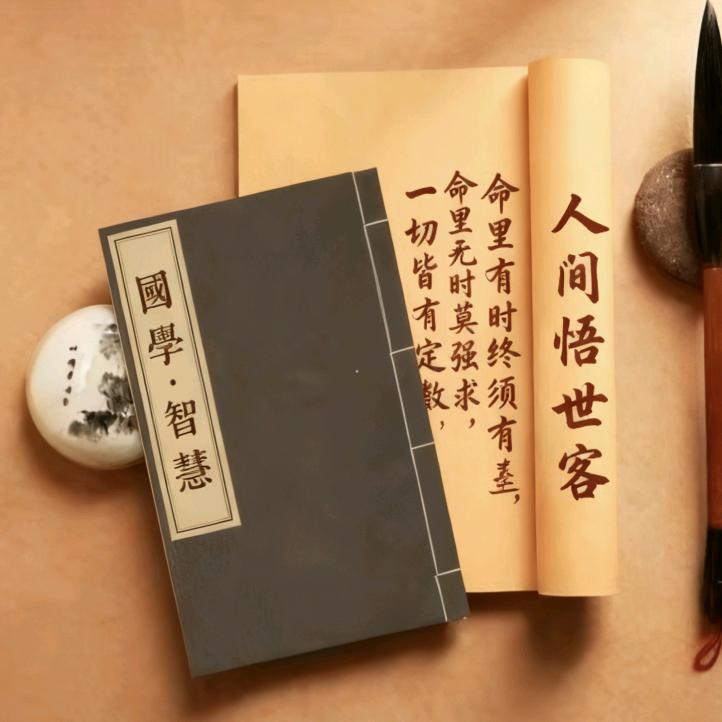 人间悟世客
命里有时终须有，
命里无时莫强求，
一切皆有定数，
國學·智慧